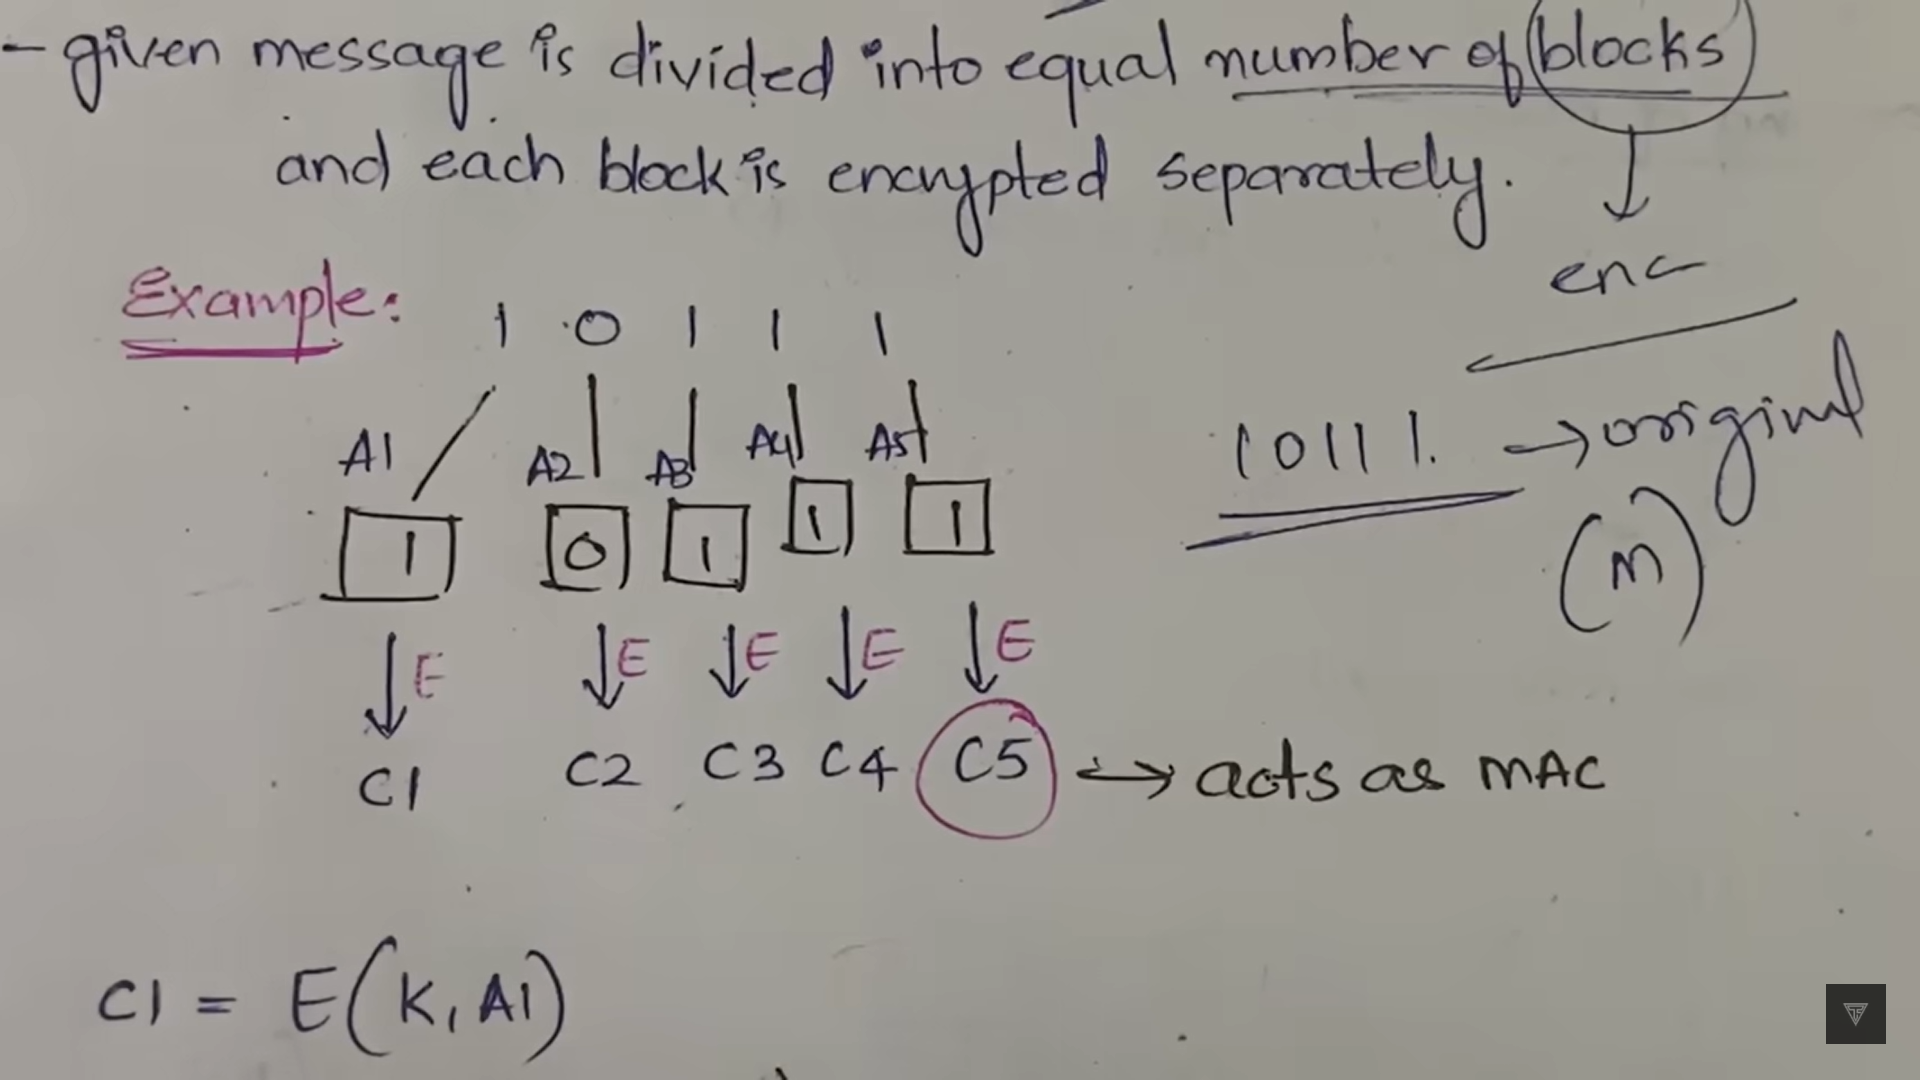 - given message is divided into equal number of blocks
and each block is encrypted separately.
enc
Example:
1 0 1 1 1
10111. → original
(M)
A1 A2 A3 A4 A5
1 0 1 1 1
↓E ↓E ↓E ↓E ↓E
C1 C2 C3 C4 C5 → acts as MAC
C1 = E(K, A1)